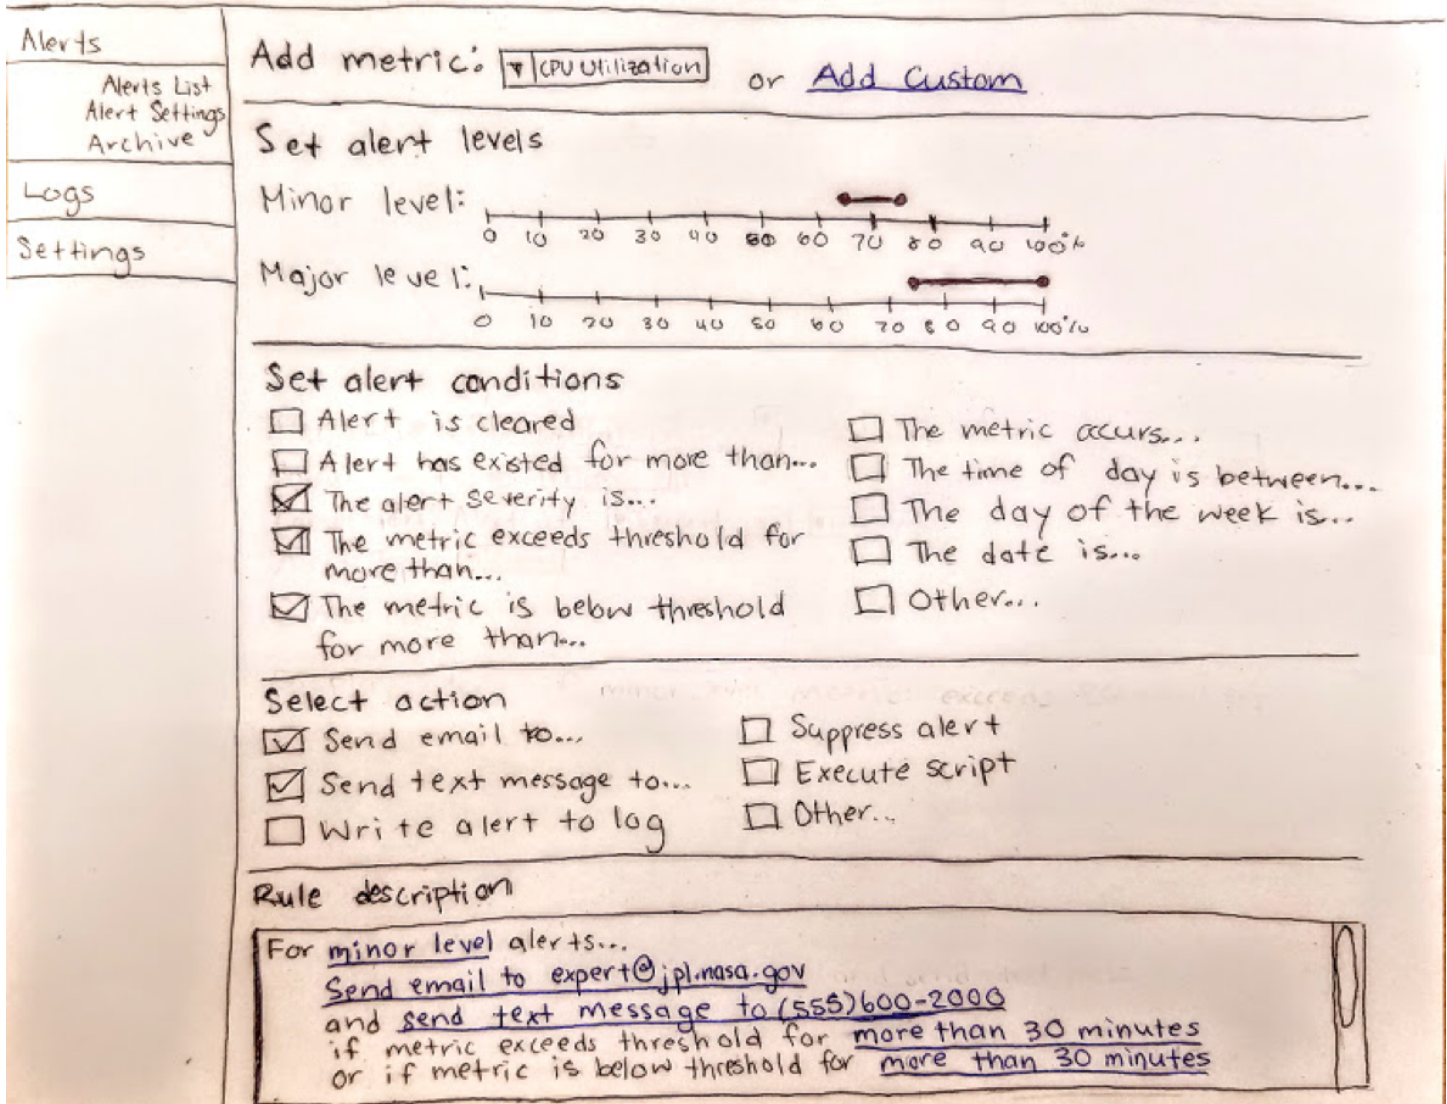 Alerts
Alerts List
Alert Settings
Archive
Logs
Settings
Add metric: CPU Utilization or Add Custom
Set alert levels
Minor level:
0 10 20 30 40 50 60 70 80 90 100%
Major level:
0 10 20 30 40 50 60 70 80 90 100%
Set alert conditions
Alert is cleared
Alert has existed for more than...
The alert severity is...
The metric exceeds threshold for
more than...
The metric is below threshold
for more than...
The metric occurs...
The time of day is between...
The day of the week is...
The date is...
Other...
Select action
Send email to...
Send text message to...
Write alert to log
Suppress alert
Execute script
Other...
Rule description
For minor level alerts...
Send email to expert@jpl.nasa.gov
and send text message to (555)600-2000
if metric exceeds threshold for more than 30 minutes
or if metric is below threshold for more than 30 minutes